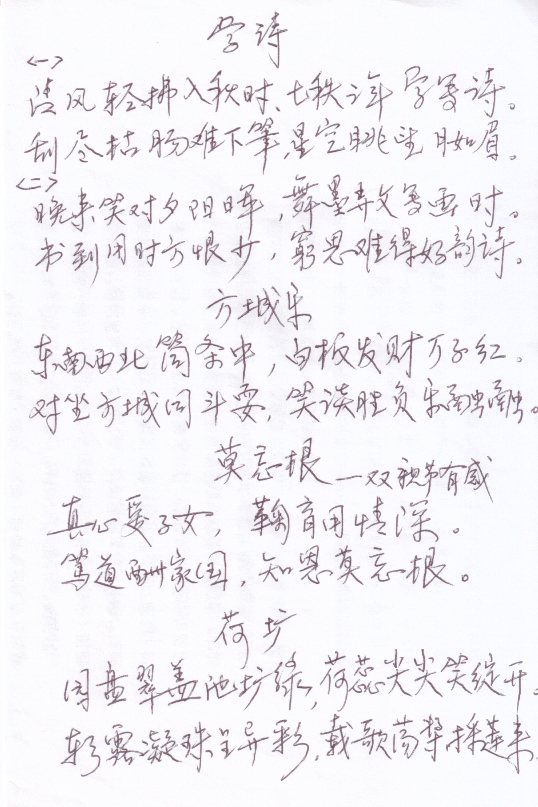 学诗
<一>
清风轻拂入秋时、七秩之年学写诗。
刮尽枯肠难下笔，星空眺望月如眉。
<二>
晚来笑对夕阳晖，舞墨弄文写画时。
书到用时方恨少，穷思难得好韵诗。
方城乐
东南西北筒条中，白板发财万子红。
对坐方城同斗耍，笑谈胜负乐融融。
莫忘根 —双亲节有感
真心爱子女，鞠育用情深。
笃道酬家国，知恩莫忘根。
荷圹
圆盘翠盖池圹绿，荷蕊尖尖笑绽开。
彩露凝珠呈异彩，载歌荡桨採莲来